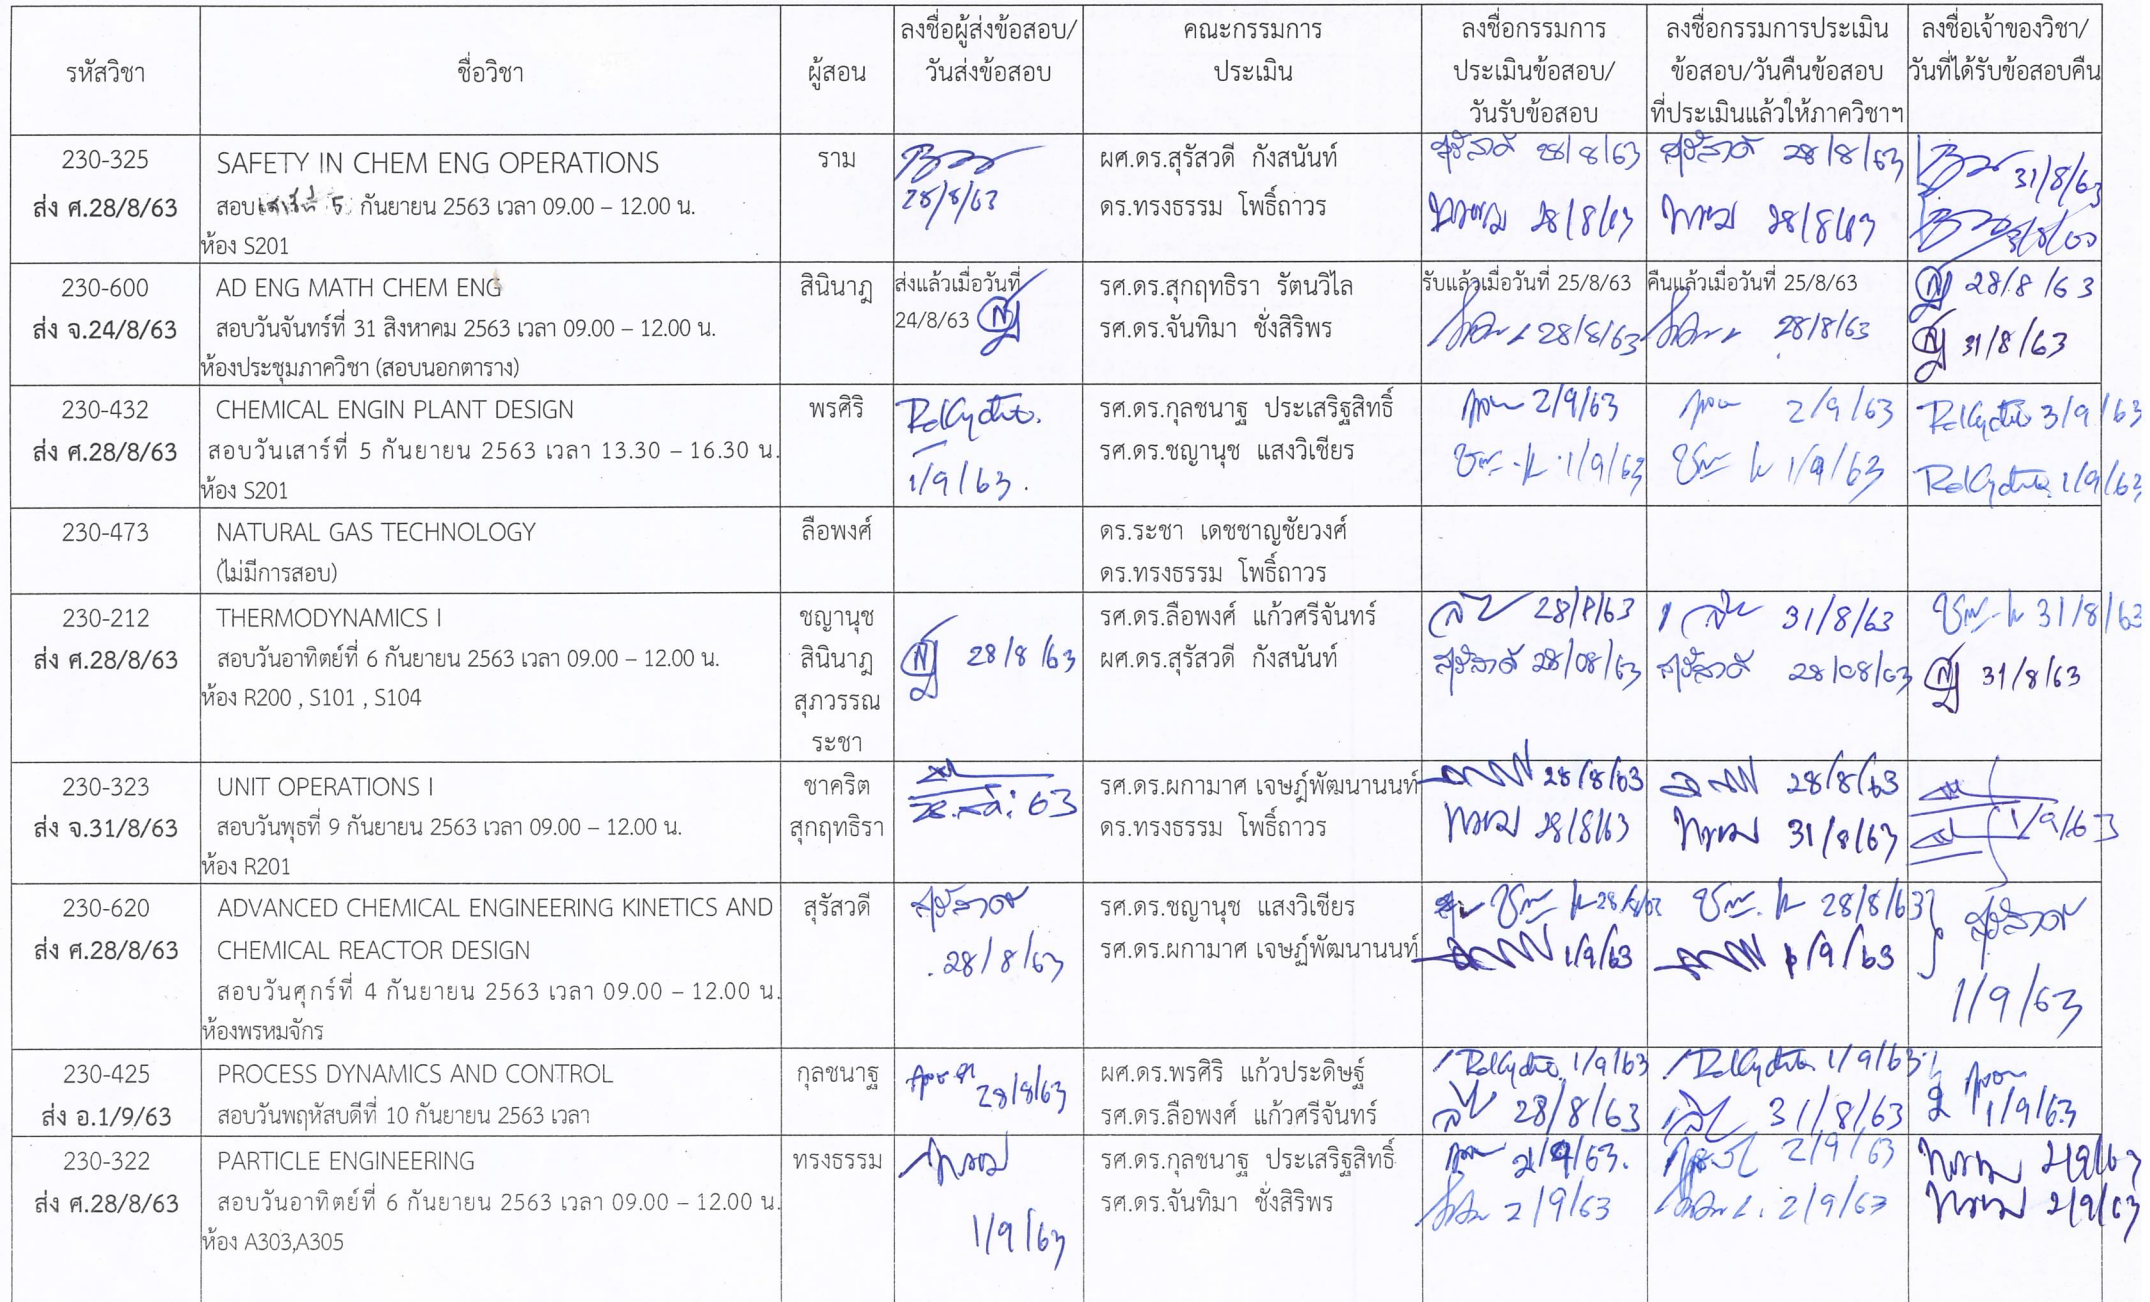 รหัสวิชา
ชื่อวิชา
ผู้สอน
ลงชื่อผู้ส่งข้อสอบ/
วันส่งข้อสอบ
คณะกรรมการ
ประเมิน
ลงชื่อกรรมการ
ประเมินข้อสอบ/
วันรับข้อสอบ
ลงชื่อกรรมการประเมิน
ข้อสอบ/วันคืนข้อสอบ
ที่ประเมินแล้วให้ภาควิชาฯ
ลงชื่อเจ้าของวิชา/
วันที่ได้รับข้อสอบคืน
230-325
ส่ง ศ.28/8/63
SAFETY IN CHEM ENG OPERATIONS
สอบ เสาร์ที่ 5 กันยายน 2563 เวลา 09.00 – 12.00 น.
ห้อง S201
ราม
28/8/63
ผศ.ดร.สุรัสวดี กังสนันท์
ดร.ทรงธรรม โพธิ์ถาวร
สุรัสวดี 28/8/63
ทรงธรรม 28/8/63
สุรัสวดี 28/8/63
28/8/63
31/8/63
230-600
ส่ง จ.24/8/63
AD ENG MATH CHEM ENG
สอบวันจันทร์ที่ 31 สิงหาคม 2563 เวลา 09.00 – 12.00 น.
ห้องประชุมภาควิชา (สอบนอกตาราง)
สินินาฎ
ส่งแล้วเมื่อวันที่
24/8/63
รศ.ดร.สุกฤทธิรา รัตนวิไล
รศ.ดร.จันทิมา ชั่งสิริพร
รับแล้วเมื่อวันที่ 25/8/63
28/8/63
คืนแล้วเมื่อวันที่ 25/8/63
28/8/63
28/8/63
31/8/63
230-432
ส่ง ศ.28/8/63
CHEMICAL ENGIN PLANT DESIGN
สอบวันเสาร์ที่ 5 กันยายน 2563 เวลา 13.30 – 16.30 น.
ห้อง S201
พรศิริ
1/9/63.
รศ.ดร.กุลชนาฐ ประเสริฐสิทธิ์
รศ.ดร.ชญานุช แสงวิเชียร
2/9/63
1/9/63
2/9/63
1/9/63
3/9/63
1/9/63
230-473
NATURAL GAS TECHNOLOGY
(ไม่มีการสอบ)
ลือพงศ์
ดร.ระชา เดชชาญชัยวงศ์
ดร.ทรงธรรม โพธิ์ถาวร
230-212
ส่ง ศ.28/8/63
THERMODYNAMICS I
สอบวันอาทิตย์ที่ 6 กันยายน 2563 เวลา 09.00 – 12.00 น.
ห้อง R200 , S101 , S104
ชญานุช
สินินาฎ
สุภวรรณ
ระชา
28/8/63
รศ.ดร.ลือพงศ์ แก้วศรีจันทร์
ผศ.ดร.สุรัสวดี กังสนันท์
28/8/63
สุรัสวดี 28/08/63
31/8/63
สุรัสวดี 28/08/63
31/8/63
31/8/63
230-323
ส่ง จ.31/8/63
UNIT OPERATIONS I
สอบวันพุธที่ 9 กันยายน 2563 เวลา 09.00 – 12.00 น.
ห้อง R201
ชาคริต
สุกฤทธิรา
รศ.ดร.ผกามาศ เจษฎ์พัฒนานนท์
ดร.ทรงธรรม โพธิ์ถาวร
28/8/63
28/8/63
28/8/63
31/8/63
1/9/63
230-620
ส่ง ศ.28/8/63
ADVANCED CHEMICAL ENGINEERING KINETICS AND
CHEMICAL REACTOR DESIGN
สอบวันศุกร์ที่ 4 กันยายน 2563 เวลา 09.00 – 12.00 น.
ห้องพรหมจักร
สุรัสวดี
28/8/63
รศ.ดร.ชญานุช แสงวิเชียร
รศ.ดร.ผกามาศ เจษฎ์พัฒนานนท์
1/9/63
28/8/63
1/9/63
1/9/63
230-425
ส่ง อ.1/9/63
PROCESS DYNAMICS AND CONTROL
สอบวันพฤหัสบดีที่ 10 กันยายน 2563 เวลา
กุลชนาฐ
28/8/63
ผศ.ดร.พรศิริ แก้วประดิษฐ์
รศ.ดร.ลือพงศ์ แก้วศรีจันทร์
1/9/63
28/8/63
1/9/63
31/8/63
1/9/63
230-322
ส่ง ศ.28/8/63
PARTICLE ENGINEERING
สอบวันอาทิตย์ที่ 6 กันยายน 2563 เวลา 09.00 – 12.00 น.
ห้อง A303,A305
ทรงธรรม
1/9/63
รศ.ดร.กุลชนาฐ ประเสริฐสิทธิ์
รศ.ดร.จันทิมา ชั่งสิริพร
2/9/63.
2/9/63
2/9/63
2/9/63
2/9/63
2/9/63